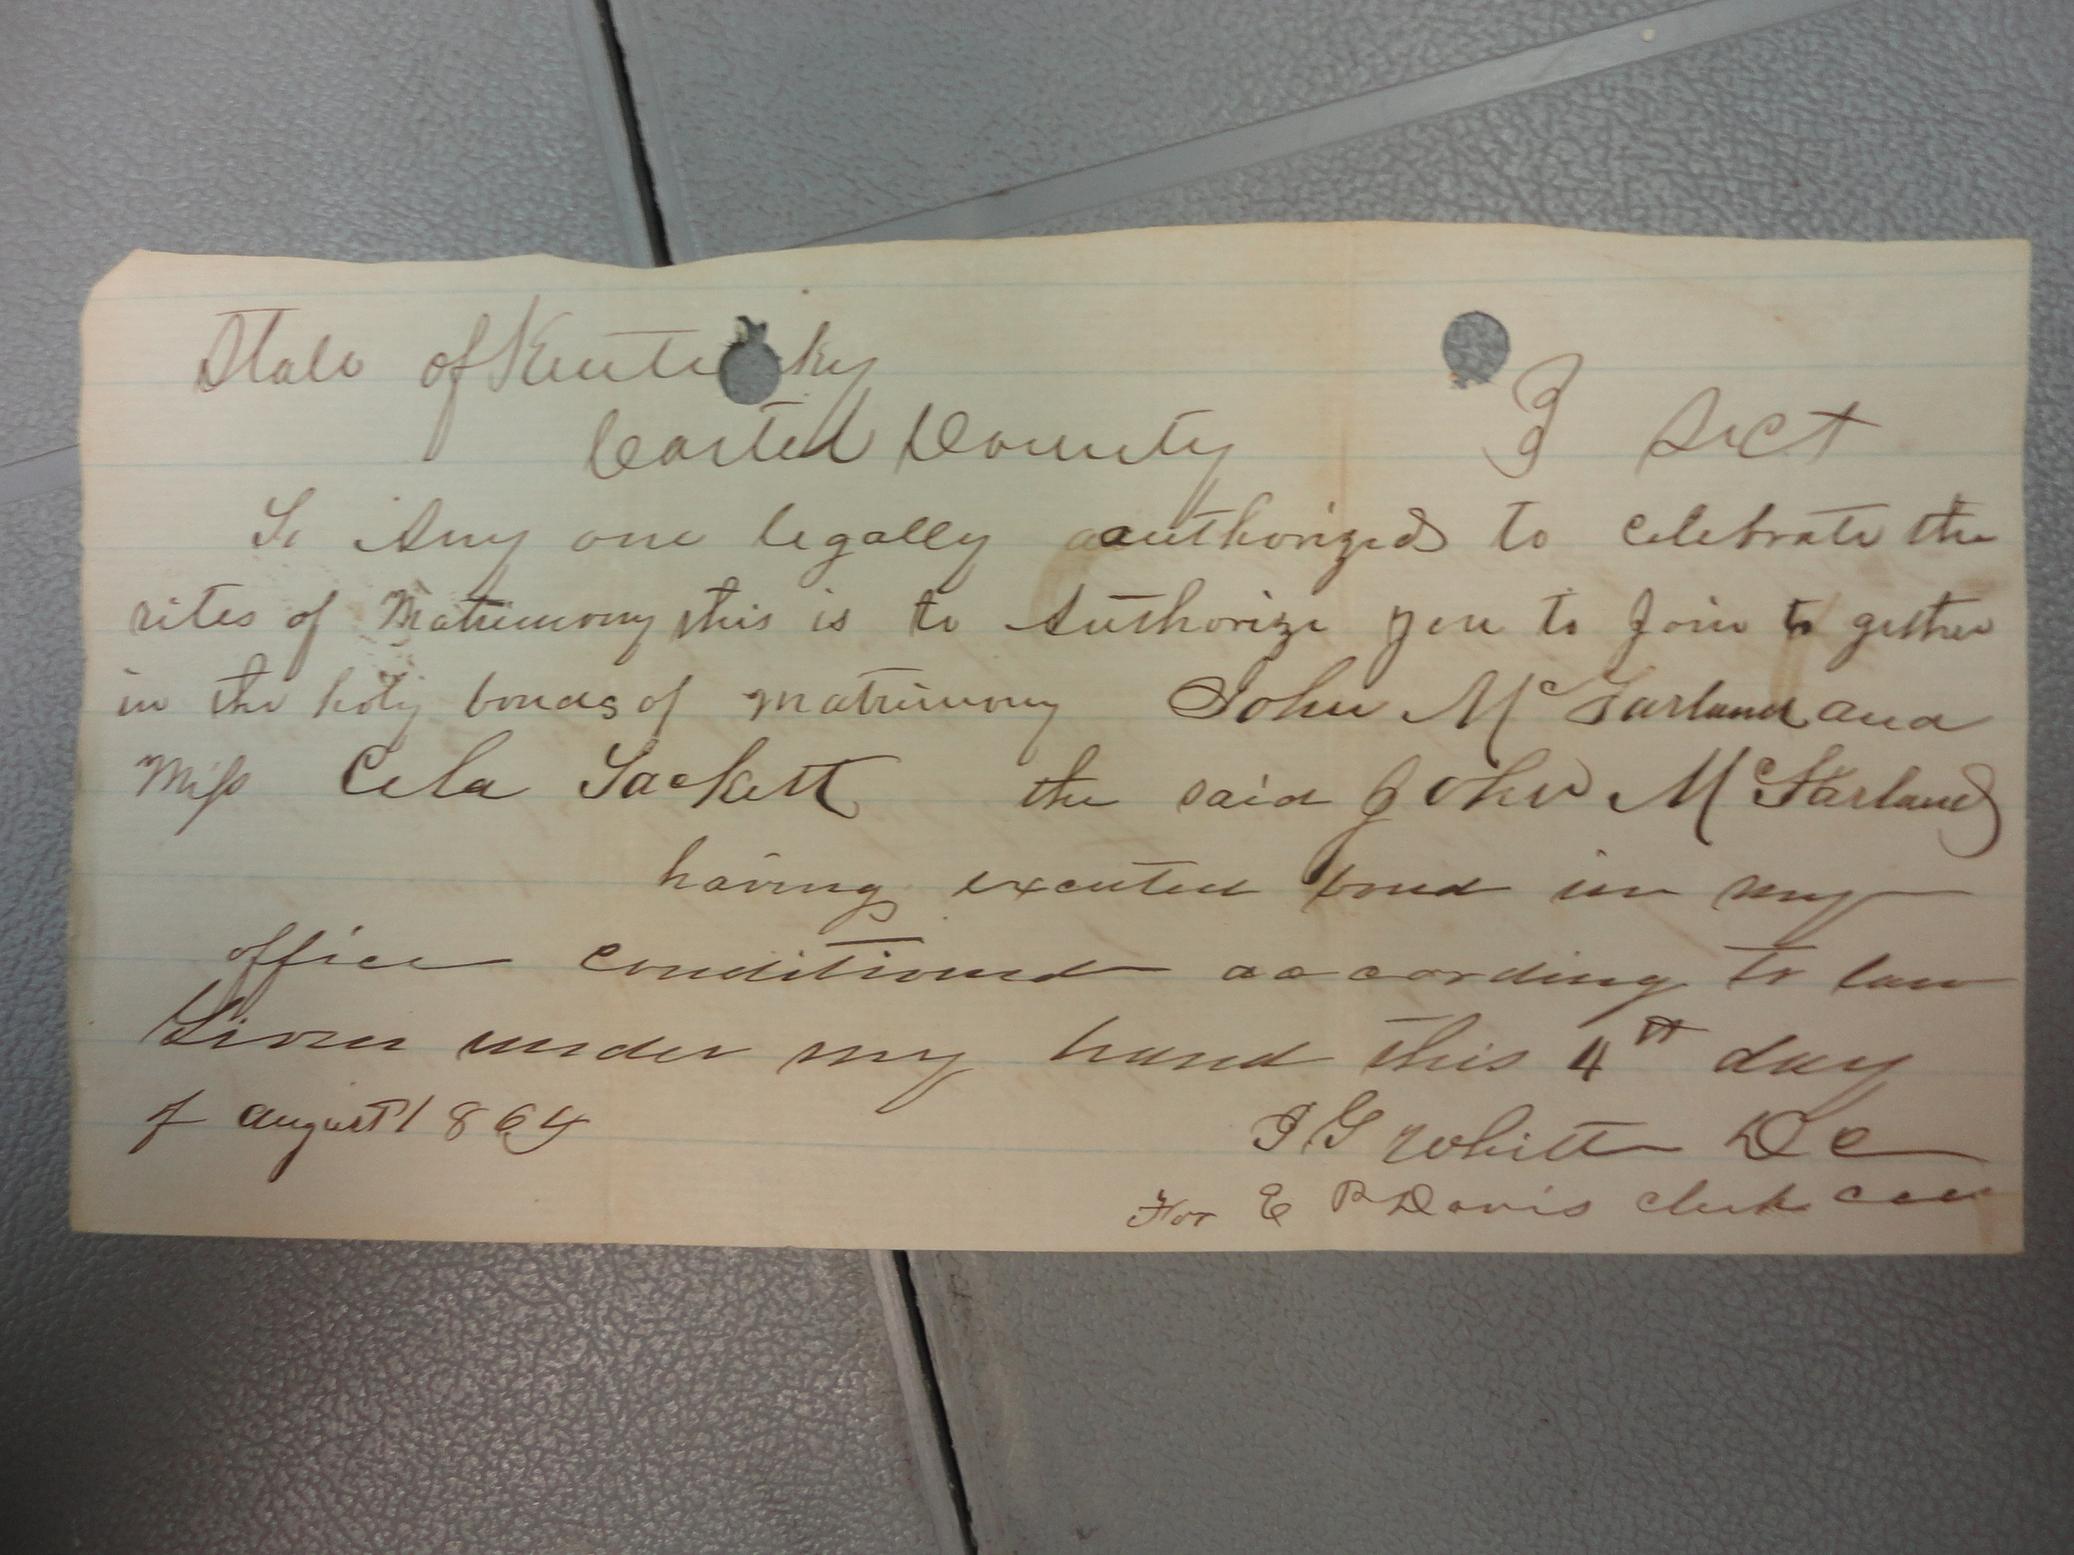 State of Kentucky
Carter County } Sct
To Any one legally authorized to celebrate the
rites of Matrimony this is to Authorize you to Join to gether
in the holy bonds of matrimony John McFarland and
Miss Cela Sackett the said John McFarland
having executed bond in my
office conditioned according to law
Given under my hand this 4th day
of august 1864
J G Whitt D C
For E P Davis clerk ccc